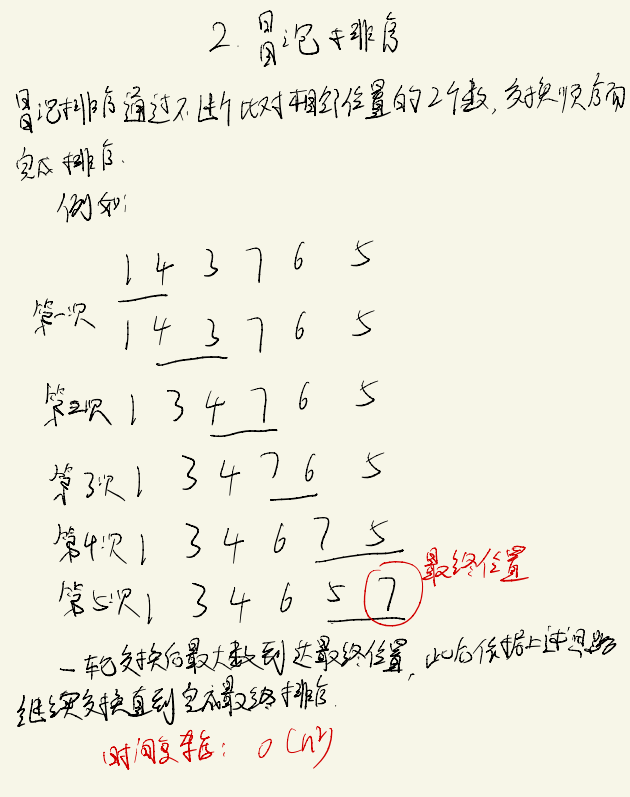 2. 冒泡排序
冒泡排序通过不断比对相邻位置的2个数,交换顺序而
完成排序.
例如:
1 4 3 7 6 5
第一次
1 4 3 7 6 5
第二次 1 3 4 7 6 5
第3次 1 3 4 7 6 5
第4次 1 3 4 6 7 5
第5次 1 3 4 6 5 7
最终位置
一轮交换后最大数到达最终位置,此后依据上述思路
继续交换直到完成最终排序.
时间复杂度: O(n²)